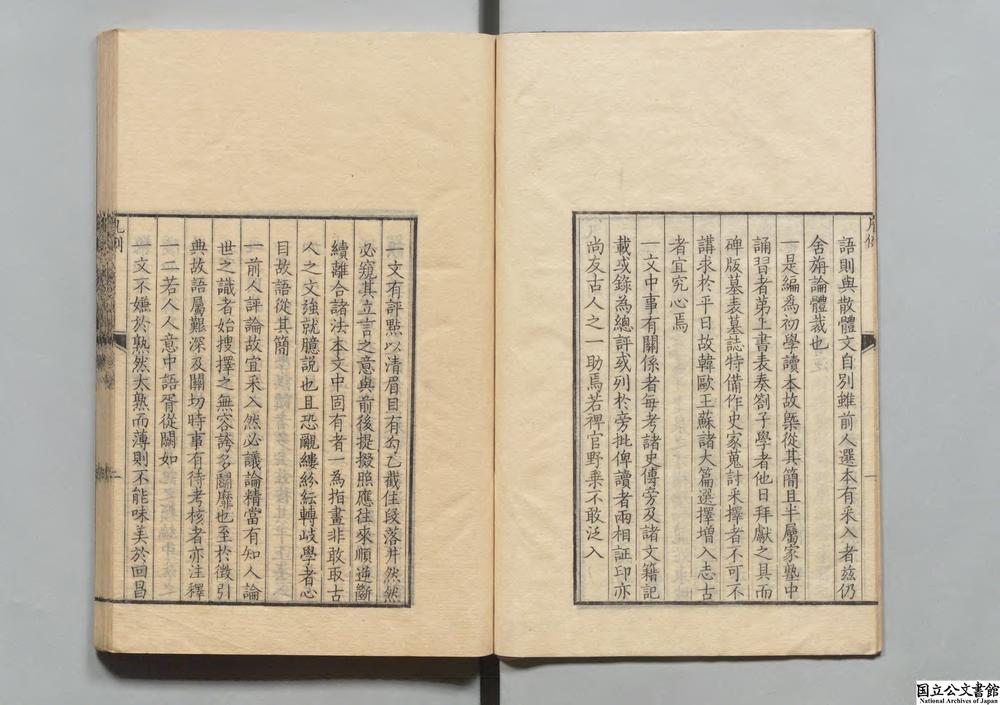 語則與散體文自別雖前人選本有采入者茲仍
舍旃論體裁也
一是編爲初學讀本故槩從其簡且半屬家塾中
誦習者第上書表奏劄子學者他日拜獻之具而
碑版墓表墓誌特備作史家蒐討采擇者不可不
講求於平日故韓歐王蘇諸大篇選擇增入志古
者宜究心焉
一文中事有關係者每考諸史傳旁及諸文籍記
載或錄為總評或列於旁批俾讀者兩相証印亦
尚友古人之一助焉若稗官野乗不敢泛入
一文有評點以清眉目有勾乙截住段落井然然
必窺其立言之意與前後提掇照應往來順逆斷
續離合諸法本文中固有者一為指畫非敢取古
人之文強就臆說也且恐覼縷紛紜轉岐學者心
目故語從其簡
一前人評論故宜采入然必議論精當有知人論
世之識者始搜擇之無容誇多鬭靡也至於徵引
典故語屬艱深及關切時事有待考核者亦注釋
一二若人人意中語胥從闕如
一文不嫌於熟然太熟而薄則不能味美於回昌
凡例
国立公文書館
National Archives of Japan